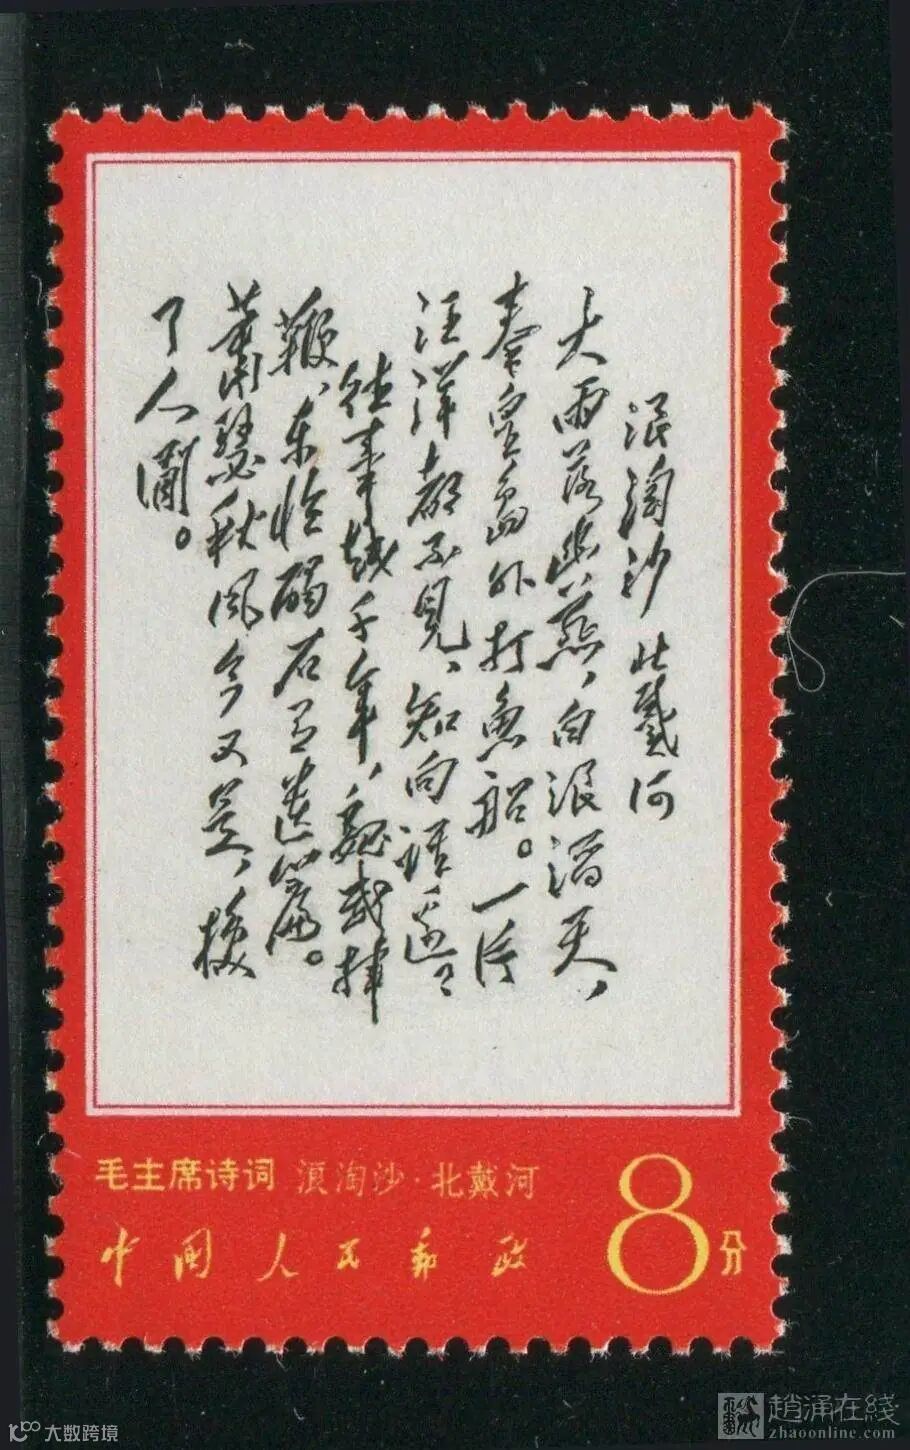 浪淘沙 北戴河
大雨落幽燕，白浪滔天，
秦皇岛外打鱼船。一片
汪洋都不见，知向谁边？
往事越千年，魏武挥
鞭，东临碣石有遗篇。
萧瑟秋风今又是，换
了人间。
毛主席诗词 浪淘沙·北戴河
中国人民邮政
8分
大数跨境
趙涌在綫
zhaoonline.com